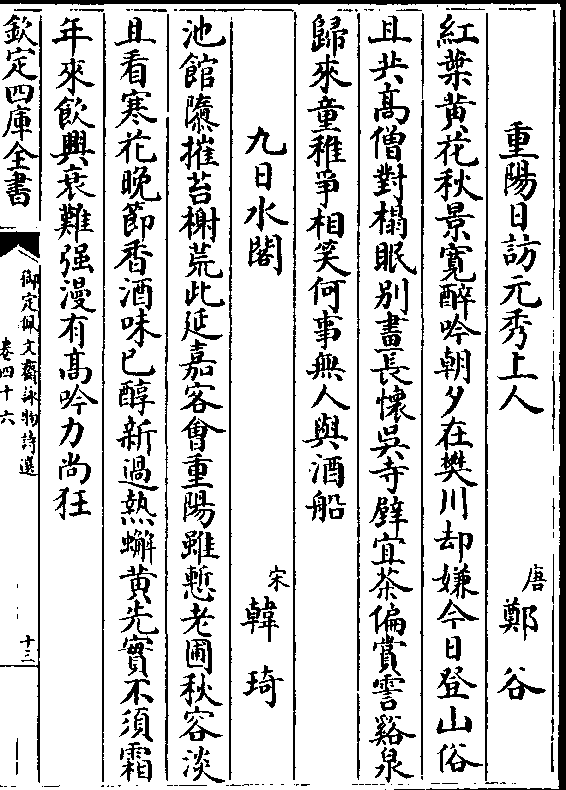 重陽日訪元秀上人
唐 鄭谷
紅葉黃花秋景寛醉吟朝夕在樊川却嫌今日登山俗
且共高僧對榻眠别畫長懷吳寺壁宜茶偏賞霅谿泉
歸來童稚爭相笑何事無人與酒船
九日水閣
宋 韓琦
池館隳摧苔榭荒此延嘉客會重陽雖慙老圃秋容淡
且看寒花晚節香酒味已醇新過熱蠏黃先實不須霜
年來飲興衰難强漫有高吟力尚狂
欽定四庫全書
御定佩文齋詠物詩選
卷四十六
十三